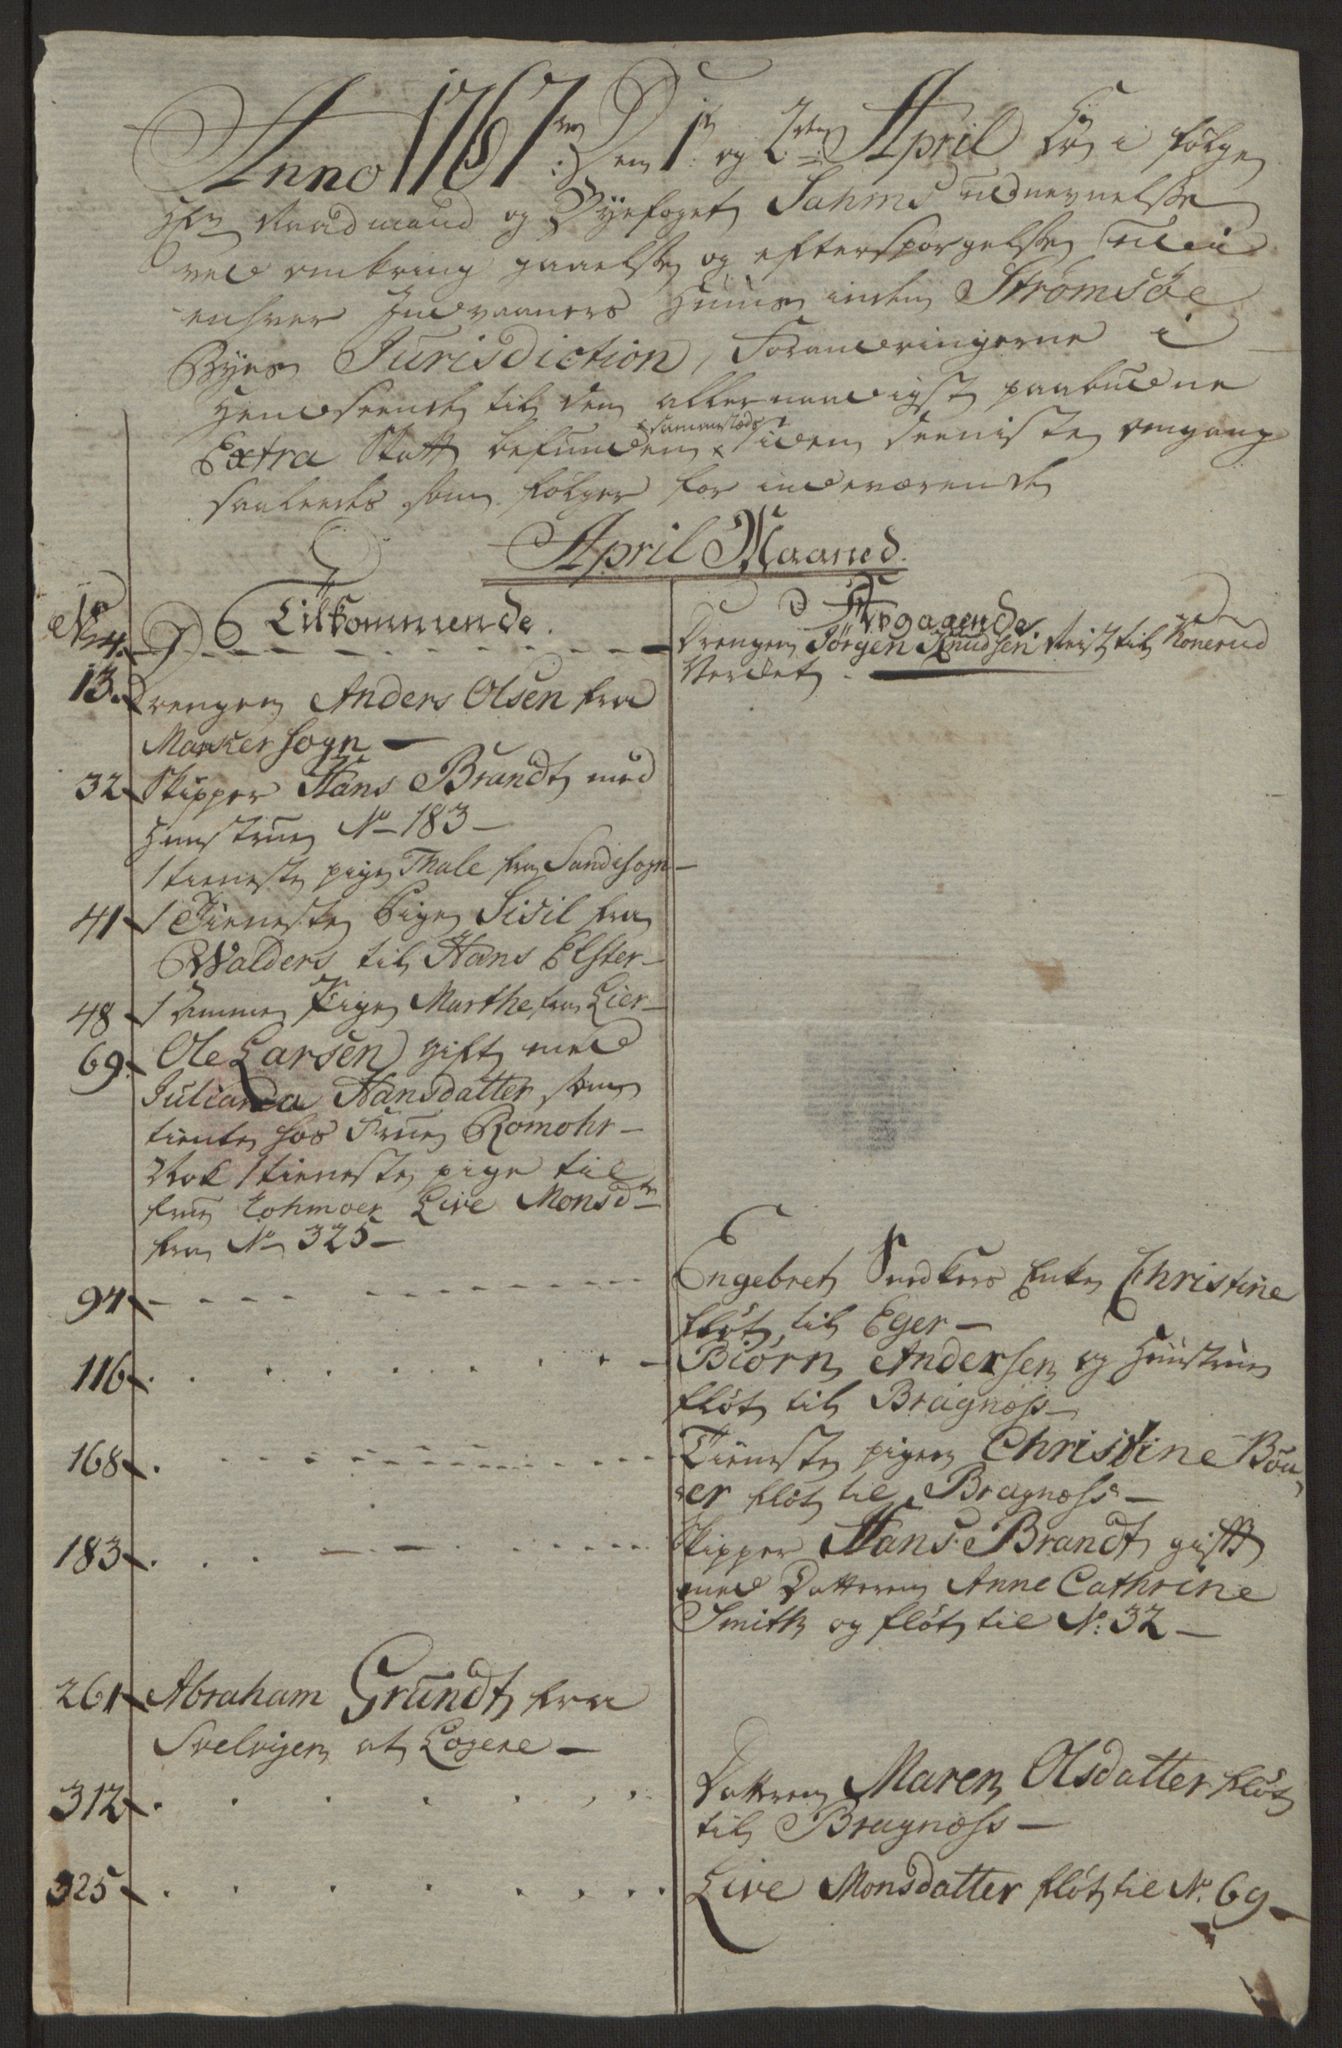 Anno 1767: Den 1te og 2den April Er i følge
Hr Raadmand og Byefoget Sahms udnevnelse
ved omkring gaaelse og efterspørgelse udi
enhver Indvaaners Huus inden Strømsøe
Byes Jurisdiction, Forandringerne i
Henseende til den allernaadigst paabudne
Extra Skatt befunden samestæds siden seeniste omgang
saaledes som følger for indeværende
April Maaned.
No Tilkommende. Afgaaende
4. Drengen Jørgen Knudsen Reist til Konerud
Verdet.
13. Drengen Anders Olsen fra
Marker Sogn
32 Skipper Hans Brandt med
Hustrue No 183
1 tieneste pige Thale fra Sande Sogn
41 1 Tieneste Pige Sisil fra
Walders til Hans Elster
48 1 Amme Pige Marthe fra Lier
69. Ole Larsen gift med
Juliana Hansdatter som
tiente hos Frue Romohr
Nok 1 tieneste pige til
frue Lohmoer Live Monsdtr
fra No 325
94 Engebret Snedkers Enke Christine
fløt til Eger
116 Biørn Andersen og Hustrue
fløt til Bragnæss
168 Tieneste pigen Christine Bou
er fløt til Bragnæss
183 Skipper Hans Brandt gift
med Datteren Anne Cathrine
Smith og fløt til No. 32
261 Abraham Grundt fra
Svelvigen at Logere
312 Datteren Maren Olsdatter fløt
til Bragnæss
325 Live Monsdatter fløt til No. 69